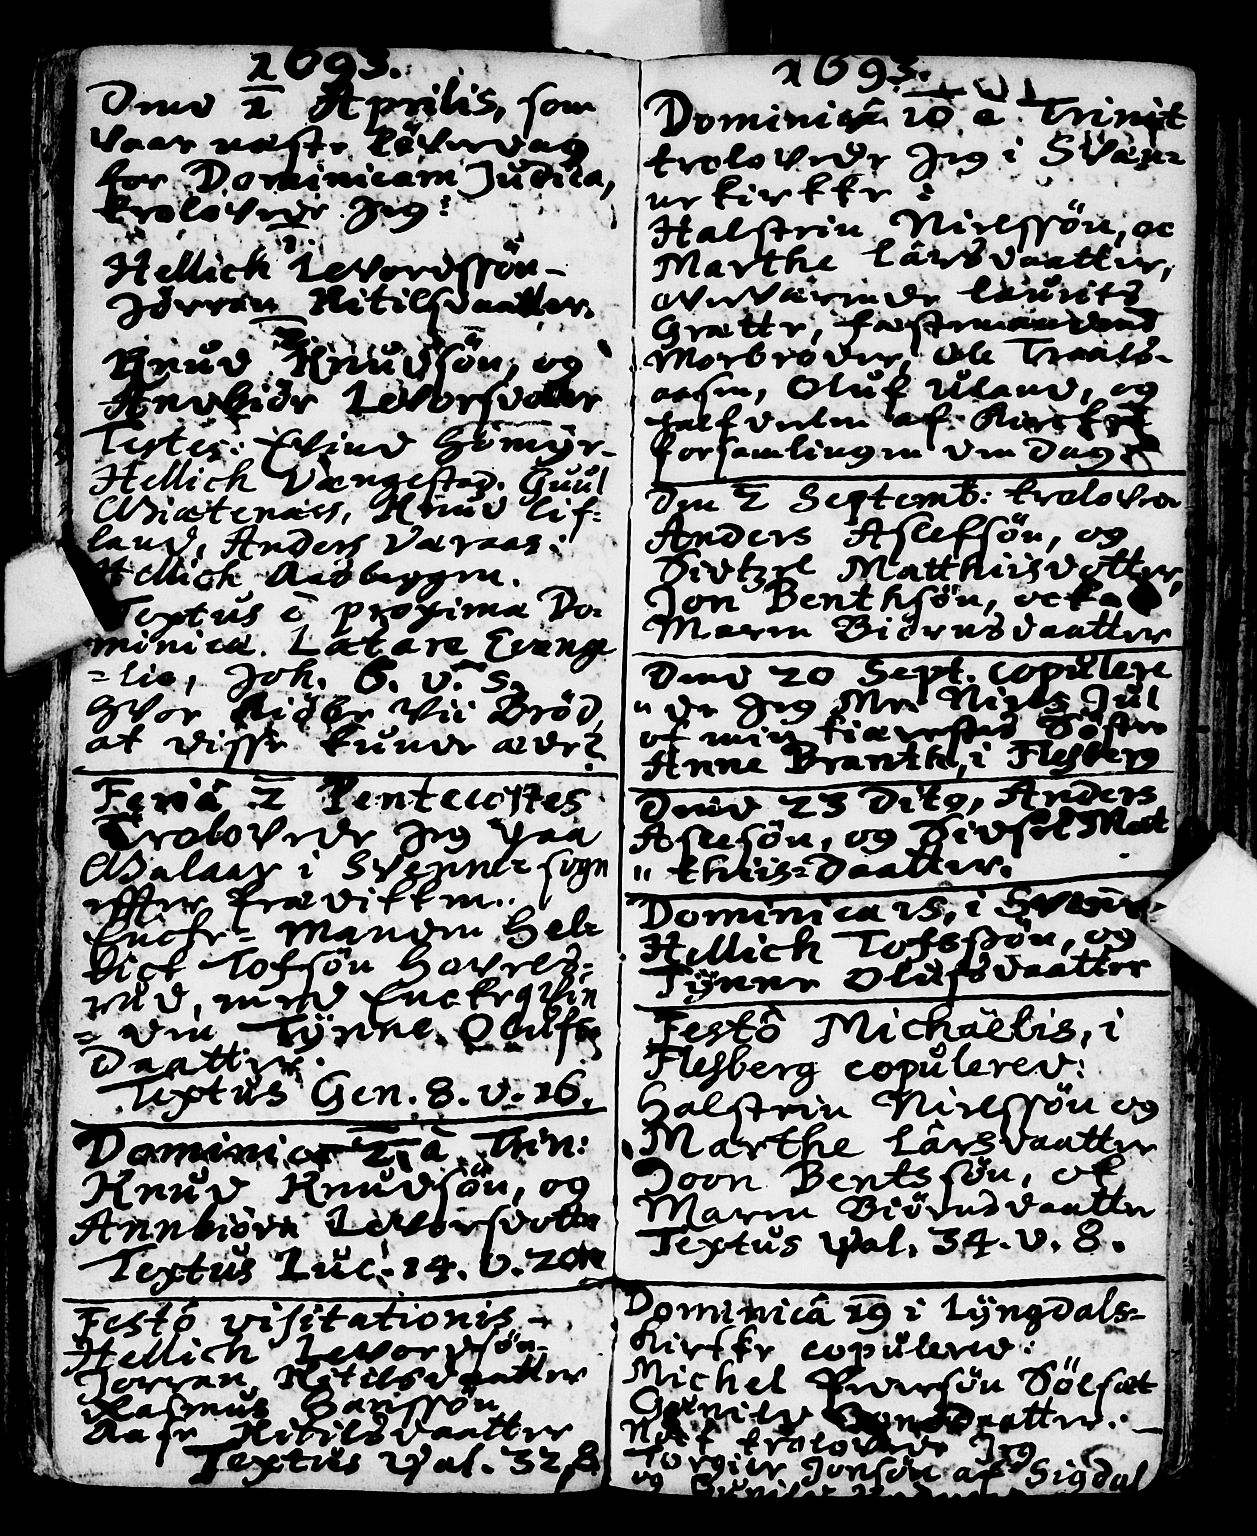 1693.
Dend 1 Aprilis, som
vaar næste Löverdag
for Dominicam Judica,
trolovede Jeg:
1.
Hellich Levordssön
Jörran Kitilsdaatter.
2
Knud Knudsön, og
Annbiör Levorsdatter
Testes: Evind
Hellich Vængestad. Guul
Knud Lif-
land, Anders Varaas.
Hellich Aasbyggen.
Textus è proxima Do-
minica. Lætare Evange
=lio, Joh. 6. v. 5.
Hvor kiöbe vii Bröd,
at disse kunde æde?
Feriâ 2 Pentecostes
Trolovede Jeg paa
i Svenne sogn
effter Prædikken.
Encke-Manden Hel-
lick Tofsön Hovels-
rud, med Enckeqvin
=den Tÿnne Olufs
Daatter.
Textus Gen. 8. v. 16.
Dominica 2, à Trin:
Knud Knudsön, og
Annbiörn Levorsdotter
Textus Luc. 14. v. 20
Festô visitationis
Hellich Levordsön
Jorran Kitilsdaatter
Rasmus Hanssön
Aase Kitilsdaatter
Textus Psal. 32. 8
1693.
Dominicâ 10 à Trinit
trolovede Jeg i Svæn-
ne kirkke:
Halstein Nielssön, oc
Marthe Lârsdaatter,
overværende Laurits
Grætte, fæstemandens
Morbroder, Ole Traals-
aasen, Oluf Uland, og
halfdelen af Kirckes
forsamlingen den dag.
Den 2 Septemb: troloved
Anders Aslefsön, og
Sidtzel Matthiisdotter,
Jon Benthsön, ocka
Maren Biörnsdaatter
Dend 20 Sept. copulere
"de Jeg Mr. Niels Jul
of min kiærestes Söster
Anne Branth, i Flesberg
Dend 23 Dito, Anders
Aslesön, og Sidsel Mat
"thiis-Daatter.
Dominica 15, i Svenne,
Hellich Tofssön, og
Tÿnne Olufsdaatter
Festô Michaëlis, i
Flesberg copulered:
Halstein Nielssön og
Marthe Lârsdaatter
Joon Bentssön, ok
Maren Biörnsdaatter
Textus Psal. 34. v. 8.
Dominicâ 19 i Lÿngdals-
kirkke copulered:
Michel Pedersön Sölsæt
Gunild daatter.
trolovede Jeg
Torgier Jonsön af Sigdal
og